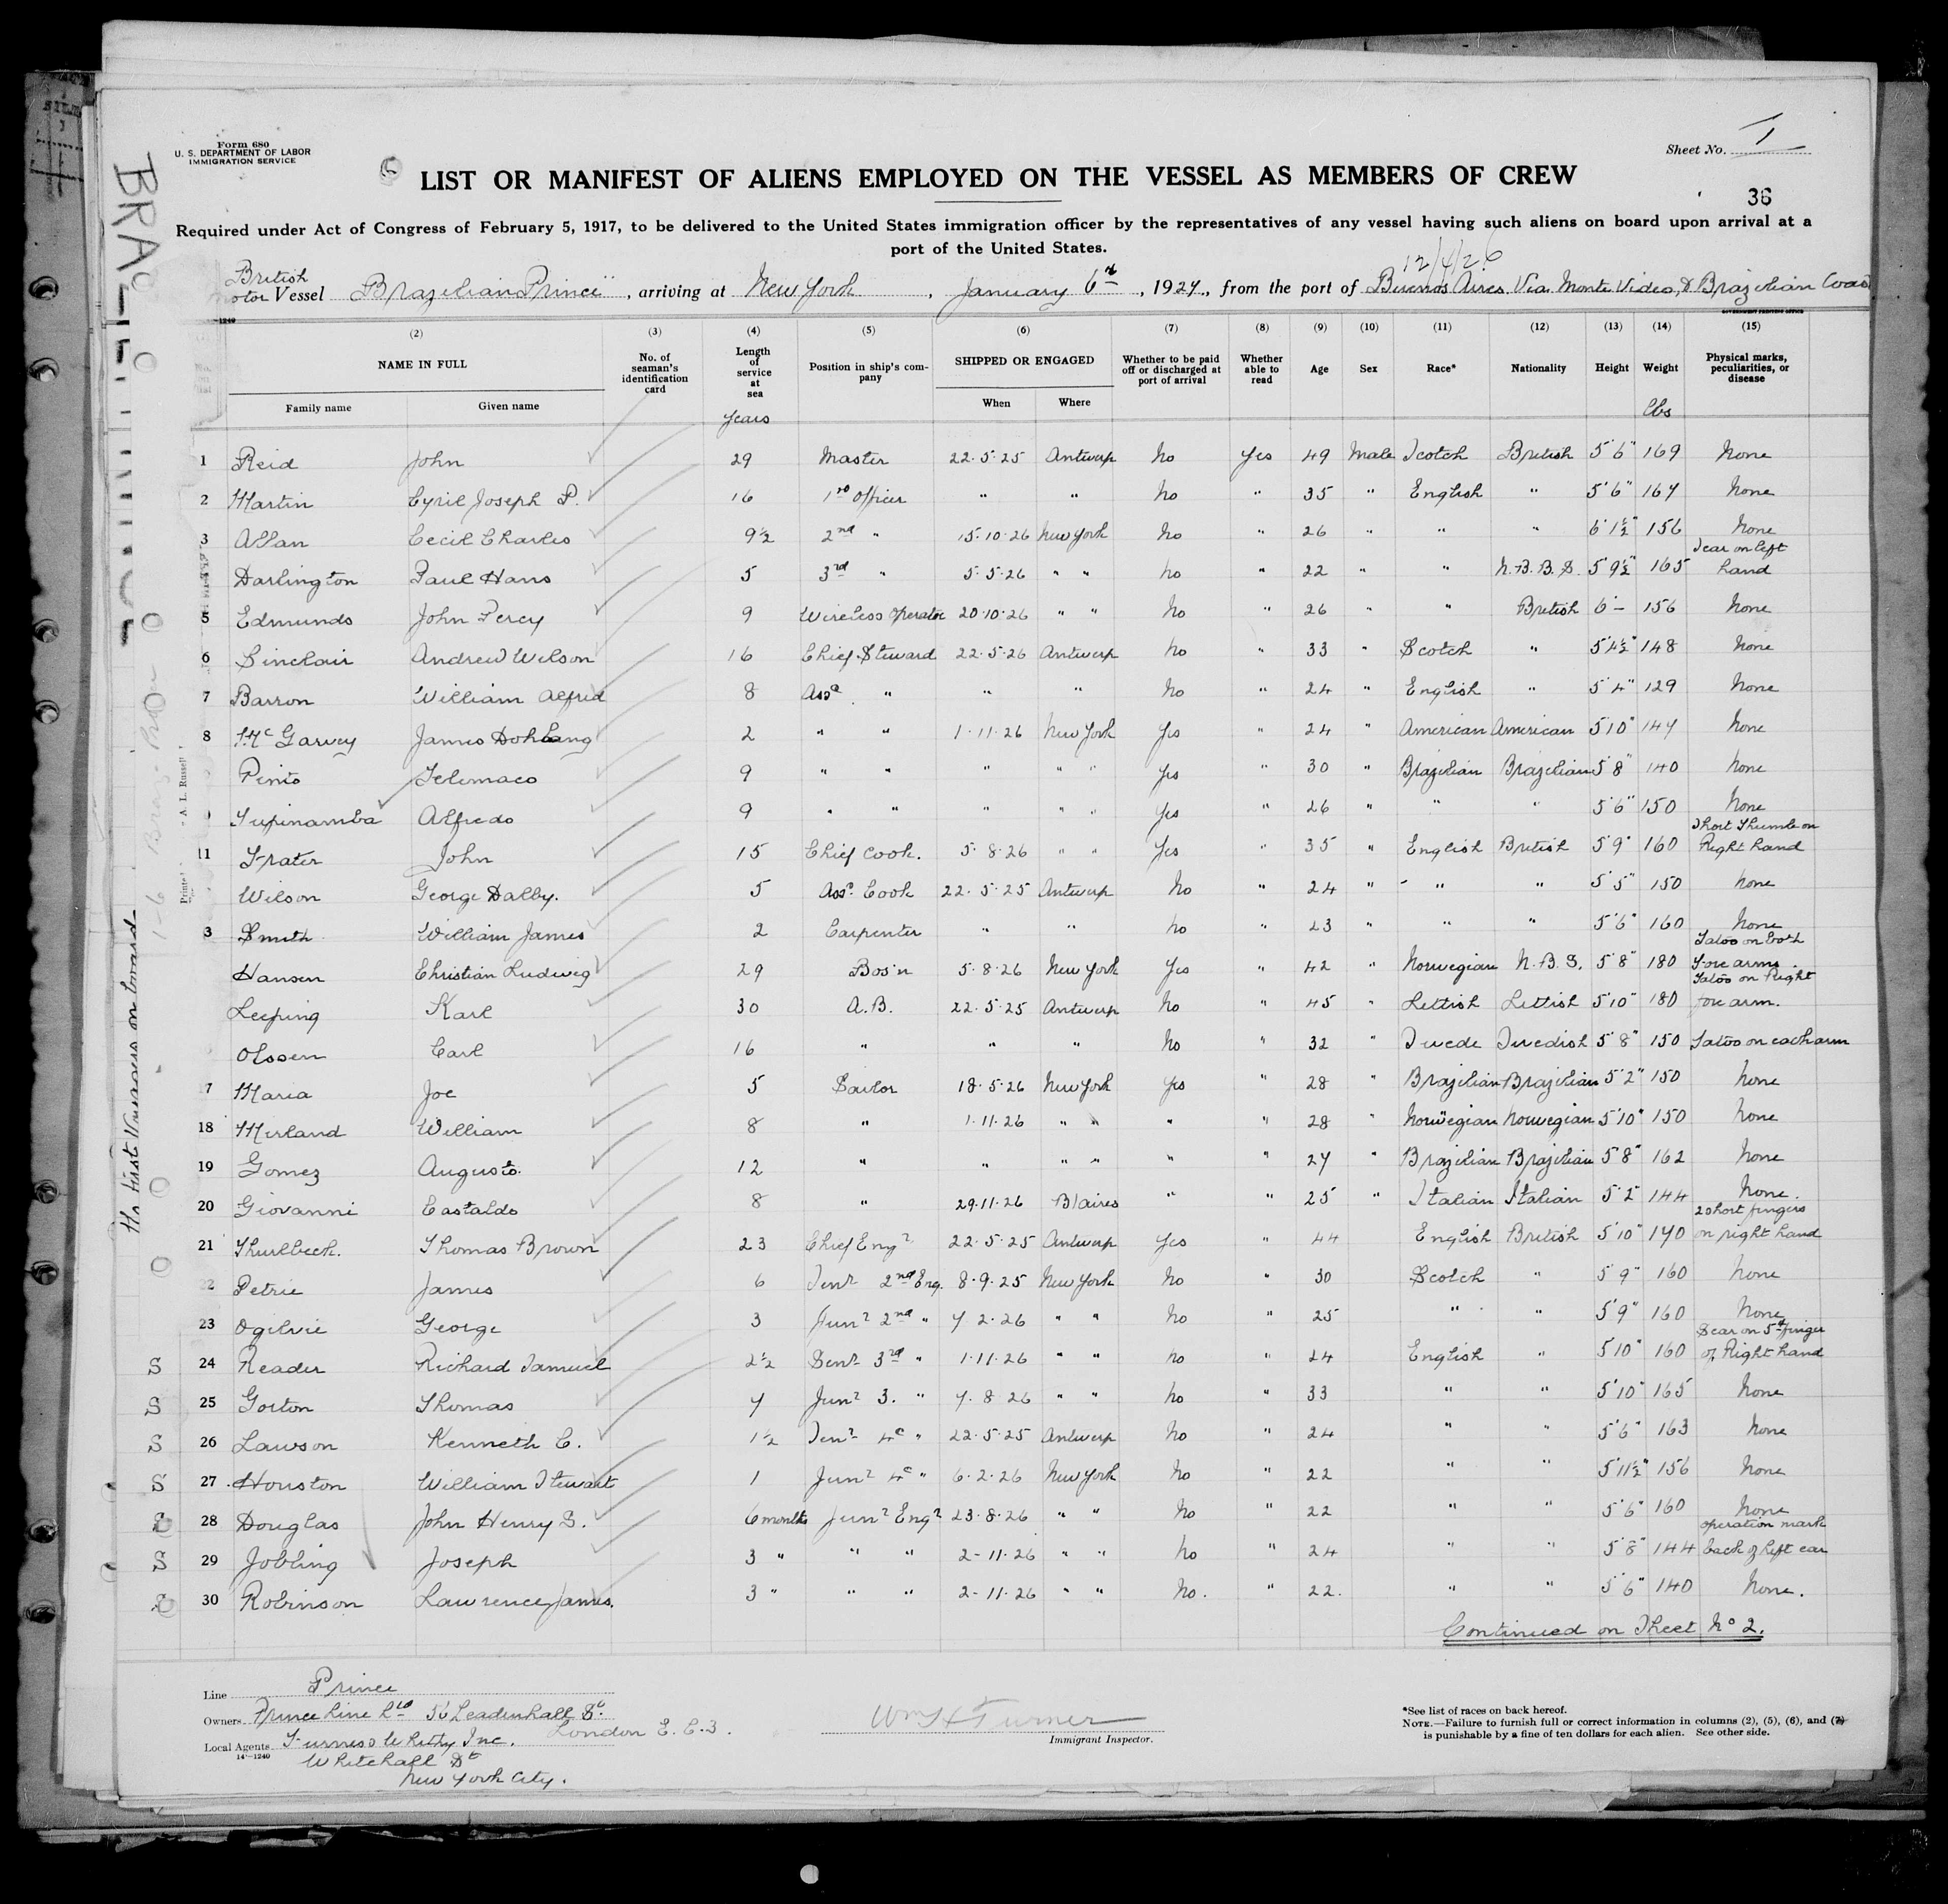 Form 680
U. S. DEPARTMENT OF LABOR
IMMIGRATION SERVICE
Sheet No. 1
LIST OR MANIFEST OF ALIENS EMPLOYED ON THE VESSEL AS MEMBERS OF CREW
36
Required under Act of Congress of February 5, 1917, to be delivered to the United States immigration officer by the representatives of any vessel having such aliens on board upon arrival at a
port of the United States.
12/4/26
British
Motor Vessel "Brazilian Prince", arriving at New York, January 6th, 1927, from the port of Buenos Aires Via Monte Video, & Brazilian Coast
(2) (3) (4) (5) (6) (7) (8) (9) (10) (11) (12) (13) (14) (15)
NAME IN FULL
Family name Given name
No. of seaman's identification card
Length of service at sea
years
Position in ship's company
SHIPPED OR ENGAGED
When Where
Whether to be paid off or discharged at port of arrival
Whether able to read
Age
Sex
Race*
Nationality
Height
Weight
lbs
Physical marks, peculiarities, or disease
1 Reid John 29 Master 22.5.25 Antwerp No Yes 49 Male Scotch British 5'6" 169 None
2 Martin Cyril Joseph P. 16 1st Officer " " No " 35 " English " 5'6" 167 None
3 Allan Cecil Charles 9½ 2nd " 15.10.26 New York No " 26 " " " 6'1½" 156 None
Darlington Paul Hans 5 3rd " 5.5.26 " " No " 22 " " N.B.B.S. 5'9½" 165 Scar on left hand
5 Edmunds John Percy 9 Wireless Operator 20.10.26 " " No " 26 " " British 6'- 156 None
6 Sinclair Andrew Wilson 16 Chief Steward 22.5.26 Antwerp No " 33 " Scotch " 5'4½" 148 None
7 Barron William Alfred 8 Asst " " " No " 24 " English " 5'4" 129 None
8 McGarvey James 2 " " 1.11.26 New York Yes " 24 " American American 5'10" 147 None
Pinto Telemaco 9 " " " " " Yes " 30 " Brazilian Brazilian 5'8" 140 None
Tupinamba Alfredo 9 " " " " " Yes " 26 " " " 5'6" 150 None
11 Frater John 15 Chief Cook. 5.8.26 " " Yes " 35 " English British 5'9" 160 Short Thumb on Right hand
Wilson George Dalby. 5 Asst Cook 22.5.25 Antwerp No " 24 " " " 5'5" 150 None
3 Smith William James 2 Carpenter " " No " 23 " " " 5'6" 160 None
Hansen Christian Ludwig 29 Bos'n 5.8.26 New York Yes " 42 " Norwegian N.B.S. 5'8" 180 Tatoo on both Fore arms.
Leeping Karl 30 A.B. 22.5.25 Antwerp No " 45 " Lettish Lettish 5'10" 180 Tatoo on Right fore arm.
Olssen Carl 16 " " " No " 32 " Swede Swedish 5'8" 150 Tatoo on each arm
7 Maria Joe 5 Sailor 18.5.26 New York Yes " 28 " Brazilian Brazilian 5'2" 150 None
18 Merland William 8 " 1.11.26 " " " " 28 " Norwegian Norwegian 5'10" 150 None
19 Gomez Augusto. 12 " " " " " " 27 " Brazilian Brazilian 5'8" 162 None
20 Giovanni Castaldo 8 " 29.11.26 B/aires " " 25 " Italian Italian 5'2" 144 None.
21 Thurlbeck. Thomas Brown 23 Chief Engr 22.5.25 Antwerp Yes " 44 English British 5'10" 170 2 short fingers on right hand
22 Petrie James 6 Senr 2nd Eng. 8.9.25 New York No " 30 Scotch " 5'9" 160 None
23 Ogilvie George 3 Junr 2nd " 7 2.26 " " No " 25 " " 5'9" 160 None
S 24 Reader Richard Samuel 2½ Senr 3rd " 1.11.26 " " No " 24 English " 5'10" 160 Scar on 5th finger of Right hand
S 25 Gorton Thomas 7 Junr 3. " 7.8 26 " " No " 33 " " 5'10" 165 None
S 26 Lawson Kenneth C. 1½ Senr 4th " 22.5.25 Antwerp No " 24 " " 5'6" 163 None
S 27 Houston William Stewart 1 Junr 4th " 6.2.26 New York No " 22 " " 5'11½" 156 None
S 28 Douglas John Henry S. 6 months Junr Engr 23.8.26 " " No " 22 " " 5'6" 160 None
S 29 Jobling Joseph 3 " " " 2-11.26 " " No " 24 " " 5'8" 144 operation mark back of left ear
S 30 Robinson Lawrence James. 3 " " " 2-11.26 " " No. " 22. " " 5'6" 140 None.
Continued on Sheet No 2.
Line Prince
Owners Prince Line Ltd 56 Leadenhall St.
London E.C.3.
Local Agents Furness Withy Inc.
14-1240
Whitehall St
New York City.
Wm H Turner
Immigrant Inspector.
*See list of races on back hereof.
NOTE.—Failure to furnish full or correct information in columns (2), (5), (6), and (7)
is punishable by a fine of ten dollars for each alien. See other side.